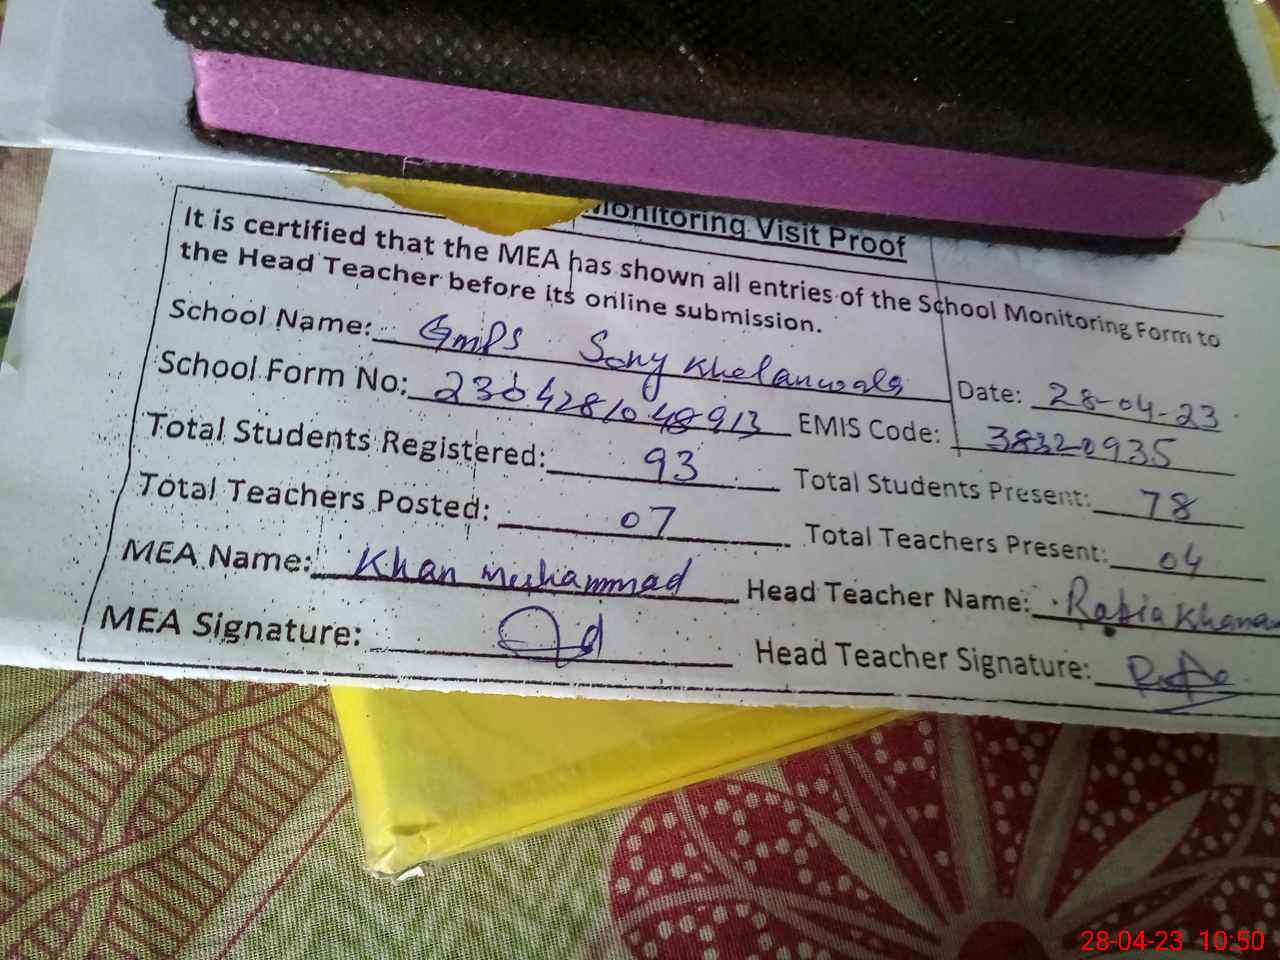 Monitoring Visit Proof
It is certified that the MEA has shown all entries of the School Monitoring Form to
the Head Teacher before its online submission.
School Name: GMPS Sony Khelanwala Date: 28-04-23
School Form No: 2304281048913 EMIS Code: 38320935
Total Students Registered: 93 Total Students Present: 78
Total Teachers Posted: 07 Total Teachers Present: 04
MEA Name: Khan Muhammad Head Teacher Name: Rabia Khanam
MEA Signature: Head Teacher Signature:
28-04-23 10:50